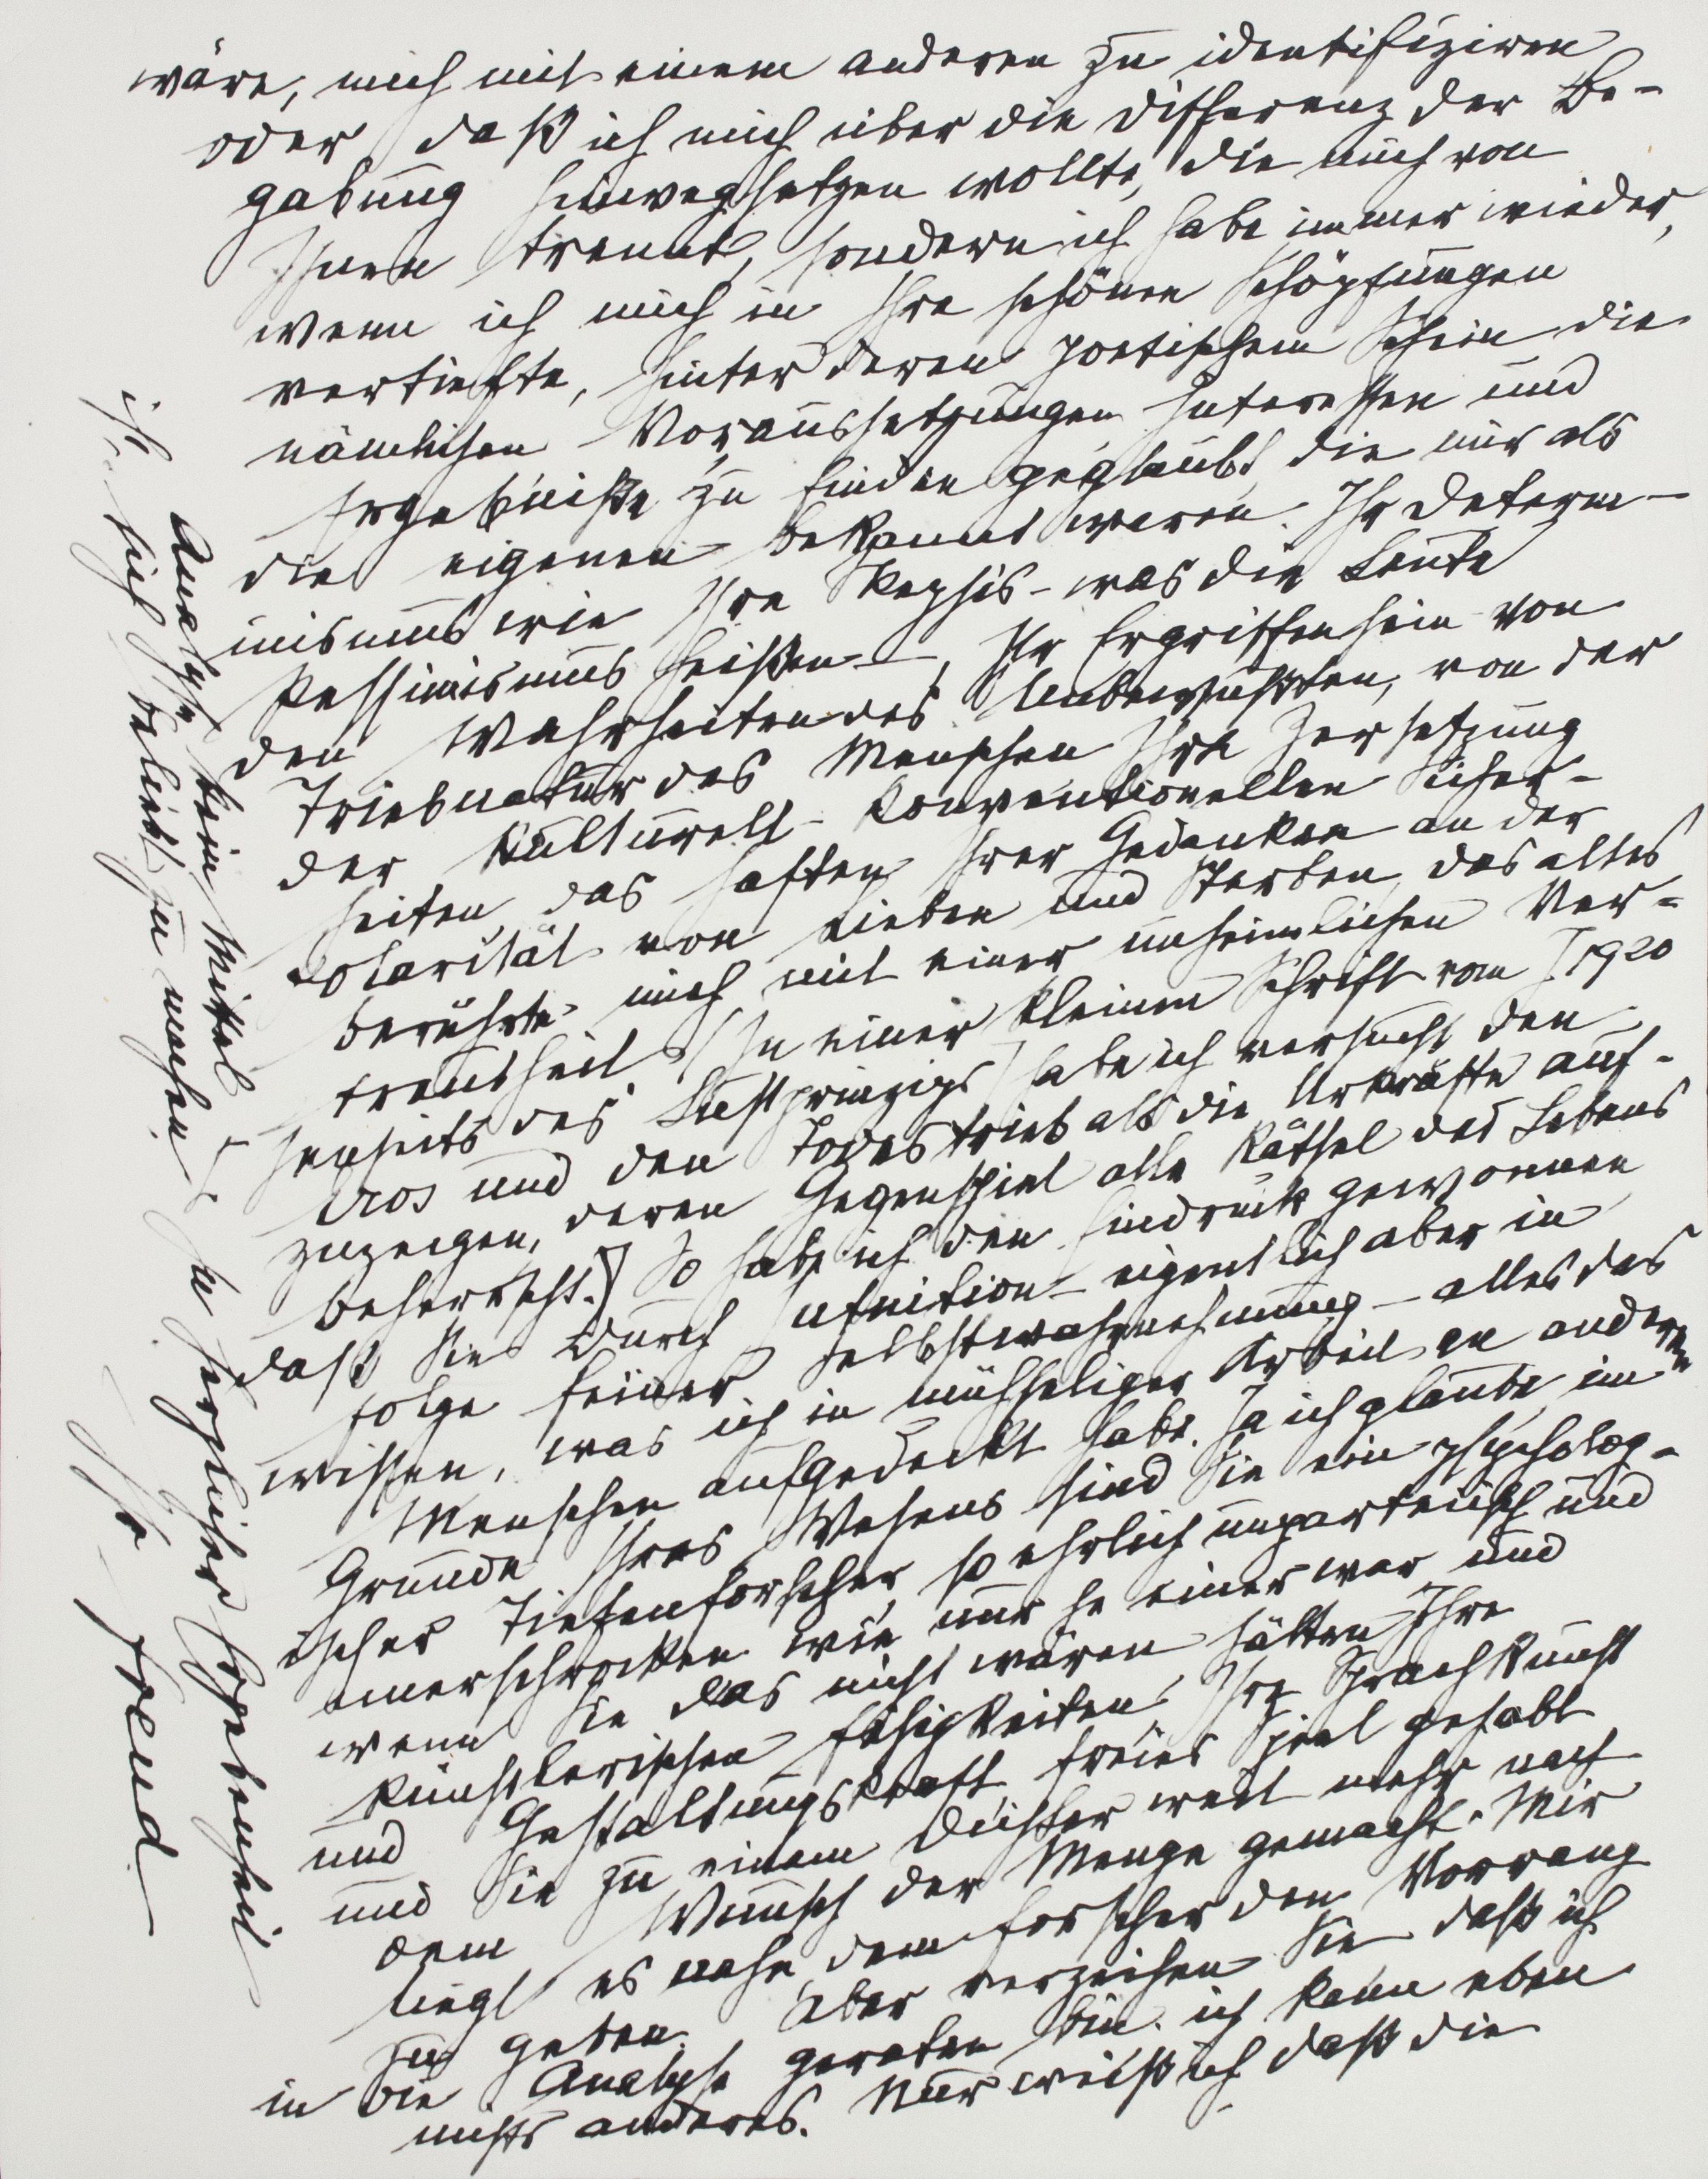 wäre, mich mit einem anderen zu identifiziren
oder daß ich mich über die Differenz der Be-
gabung hinwegsetzen wollte, die mich von
Ihnen trennt, sondern ich habe immer wieder,
wenn ich mich in Ihre schönen Schöpfungen
vertiefte, hinter deren poetischem Schein die
nämlichen Voraussetzungen, Interessen und
Ergebnisse zu finden geglaubt, die mir als
die eigenen bekannt waren. Ihr Determi-
nismus wie Ihre Skepsis - was die Leute
Pessimismus heißen -, Ihr Ergriffensein von
den Wahrheiten des Unbewußten, von der
Triebnatur des Menschen Ihre Zersetzung
der kulturell-konventionellen Sicher-
heiten, das Haften Ihrer Gedanken an der
Polarität von Lieben und Sterben, das alles
berührte mich mit einer unheimlichen Ver-
trautheit. (In einer kleinen Schrift vom J 1920
Jenseits des Lustprinzips habe ich versucht den
Eros und den Todestrieb als die Urkräfte auf-
zuzeigen, deren Gegenspiel alle Rätsel des Lebens
beherrscht.) So habe ich den Eindruck gewonnen
daß Sie durch Intuition - eigentlich aber in
folge feiner Selbstwahrnehmung - alles das
wissen, was ich in mühseliger Arbeit an anderen
Menschen aufgedeckt habe. Ja ich glaube, im
Grunde Ihres Wesens sind Sie ein psycholog-
ischer Tiefenforscher, so ehrlich unparteiisch und
unerschrocken wie nur je einer war und
wenn Sie das nicht wären hätten Ihre
künstlerischen Fähigkeiten, Ihre Sprachkunst
und Gestaltungskraft, freies Spiel gehabt
und Sie zu einem Dichter weit mehr nach
dem Wunsch der Menge gemacht. Mir
liegt es nahe, dem Forscher den Vorrang
zu geben. Aber verzeihen Sie daß ich
in die Analyse geraten bin. ich kann eben
nichts anderes. Nur weiß ich daß die
Analyse kein Mittel
ist, sich beliebt zu machen.
In herzlicher Ergebenheit
Ihr Freud